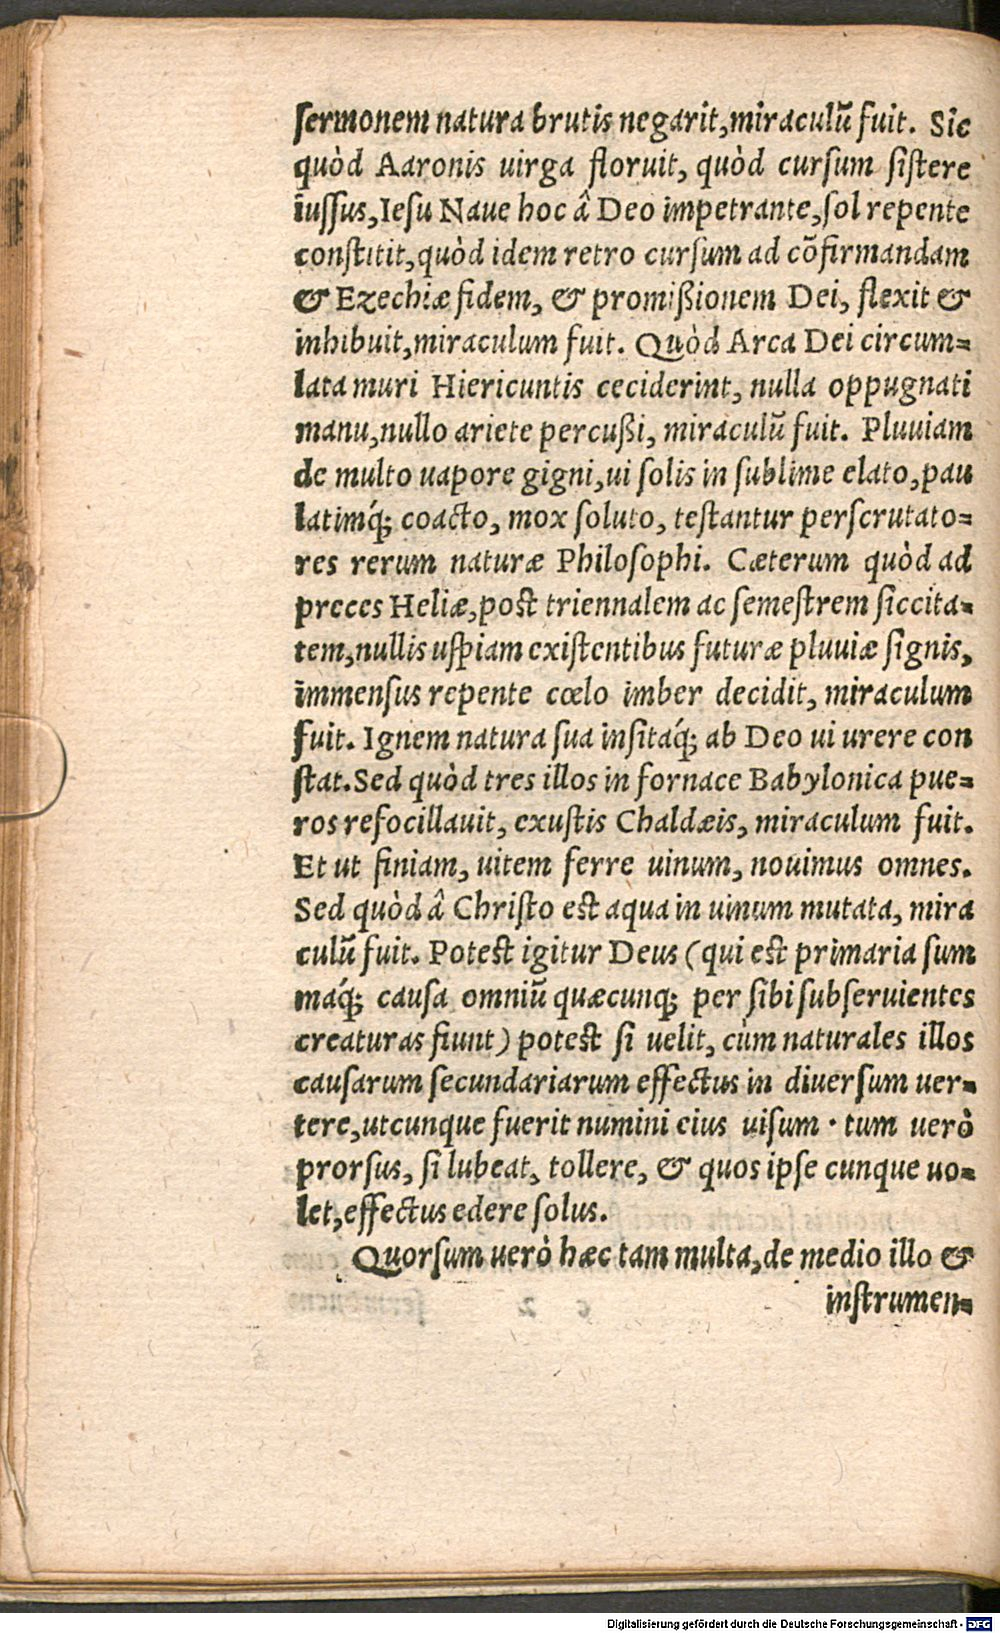 sermonem natura brutis negarit, miraculū fuit. Sic
quòd Aaronis uirga floruit, quòd cursum sistere
iussus, Iesu Naue hoc â Deo impetrante, sol repente
constitit, quòd idem retro cursum ad cōfirmandam
& Ezechiæ fidem, & promißionem Dei, flexit &
inhibuit, miraculum fuit. Quòd Arca Dei circum=
lata muri Hiericuntis ceciderint, nulla oppugnati
manu, nullo ariete percußi, miraculū fuit. Pluuiam
de multo uapore gigni, ui solis in sublime elato, pau
latimq́; coacto, mox soluto, testantur perscrutato=
res rerum naturæ Philosophi. Cæterum quòd ad
preces Heliæ, post triennalem ac semestrem siccita=
tem, nullis uspiam existentibus futuræ pluuiæ signis,
immensus repente cœlo imber decidit, miraculum
fuit. Ignem natura sua insitaq́; ab Deo ui urere con
stat. Sed quòd tres illos in fornace Babylonica pue=
ros refocillauit, exustis Chaldæis, miraculum fuit.
Et ut finiam, uitem ferre uinum, nouimus omnes.
Sed quòd â Christo est aqua in uinum mutata, mira
culū fuit. Potest igitur Deus (qui est primaria sum
maq́; causa omniū quæcunq; per sibi subseruientes
creaturas fiunt) potest si uelit, cùm naturales illos
causarum secundariarum effectus in diuersum uer=
tere, utcunque fuerit numini eius uisum · tum uerò
prorsus, si lubeat, tollere, & quos ipse cunque uo=
let, effectus edere solus.
Quorsum uerò hæc tam multa, de medio illo &
instrumen=
Digitalisierung gefördert durch die Deutsche Forschungsgemeinschaft - DFG